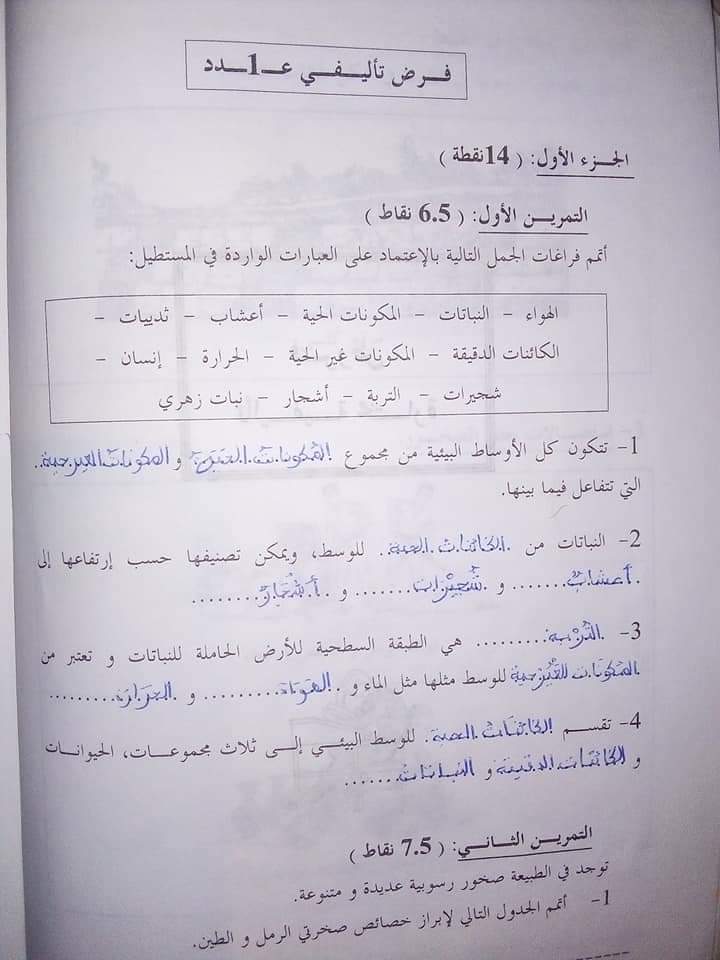 فـرض تأليـفـي عـ1ـدد
الجـزء الأول: ( 14نقطة )
التمريـن الأول: ( 6.5 نقاط )
أتمم فراغات الجمل التالية بالإعتماد على العبارات الواردة في المستطيل:
الهواء – النباتات – المكونات الحية – أعشاب – ثدييات –
الكائنات الدقيقة – المكونات غير الحية – الحرارة – إنسان –
شجيرات – التربة – أشجار – نبات زهري
1– تتكون كل الأوساط البيئية من مجموع المكونات الحية و المكونات الغير حية.
التي تتفاعل فيما بينها.
2– النباتات من الكائنات الحية. للوسط، ويمكن تصنيفها حسب إرتفاعها إلى
.أعشاب....... و شُجَيْرات....... و .أشْجار.........
3– التُرْبة.......... هي الطبقة السطحية للأرض الحاملة للنباتات و تعتبر من
المكونات الغير حية للوسط مثلها مثل الماء و .الهواء.......... و الحرارة..........
4– تقسم الكائنات الحية. للوسط البيئي إلى ثلاث مجموعات، الحيوانات
و الكائنات الدقيقة و النباتات.......
التمرين الثاني: ( 7.5 نقاط )
توجد في الطبيعة صخور رسوبية عديدة و متنوعة.
1– أتمم الجدول التالي لإبراز خصائص صخرتي الرمل و الطين.